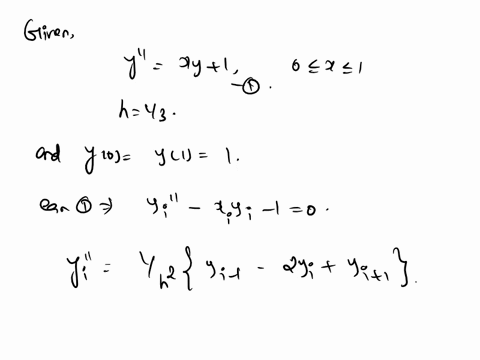 Given,
y'' = xy+1, 0 ≤ x ≤ 1
—①.
h = 1/3.
and y(0) = y(1) = 1.
ean ① ⇒ yᵢ'' - xᵢyᵢ - 1 = 0.
yᵢ'' = 1/h² { yᵢ₋₁ - 2yᵢ + yᵢ₊₁ }.